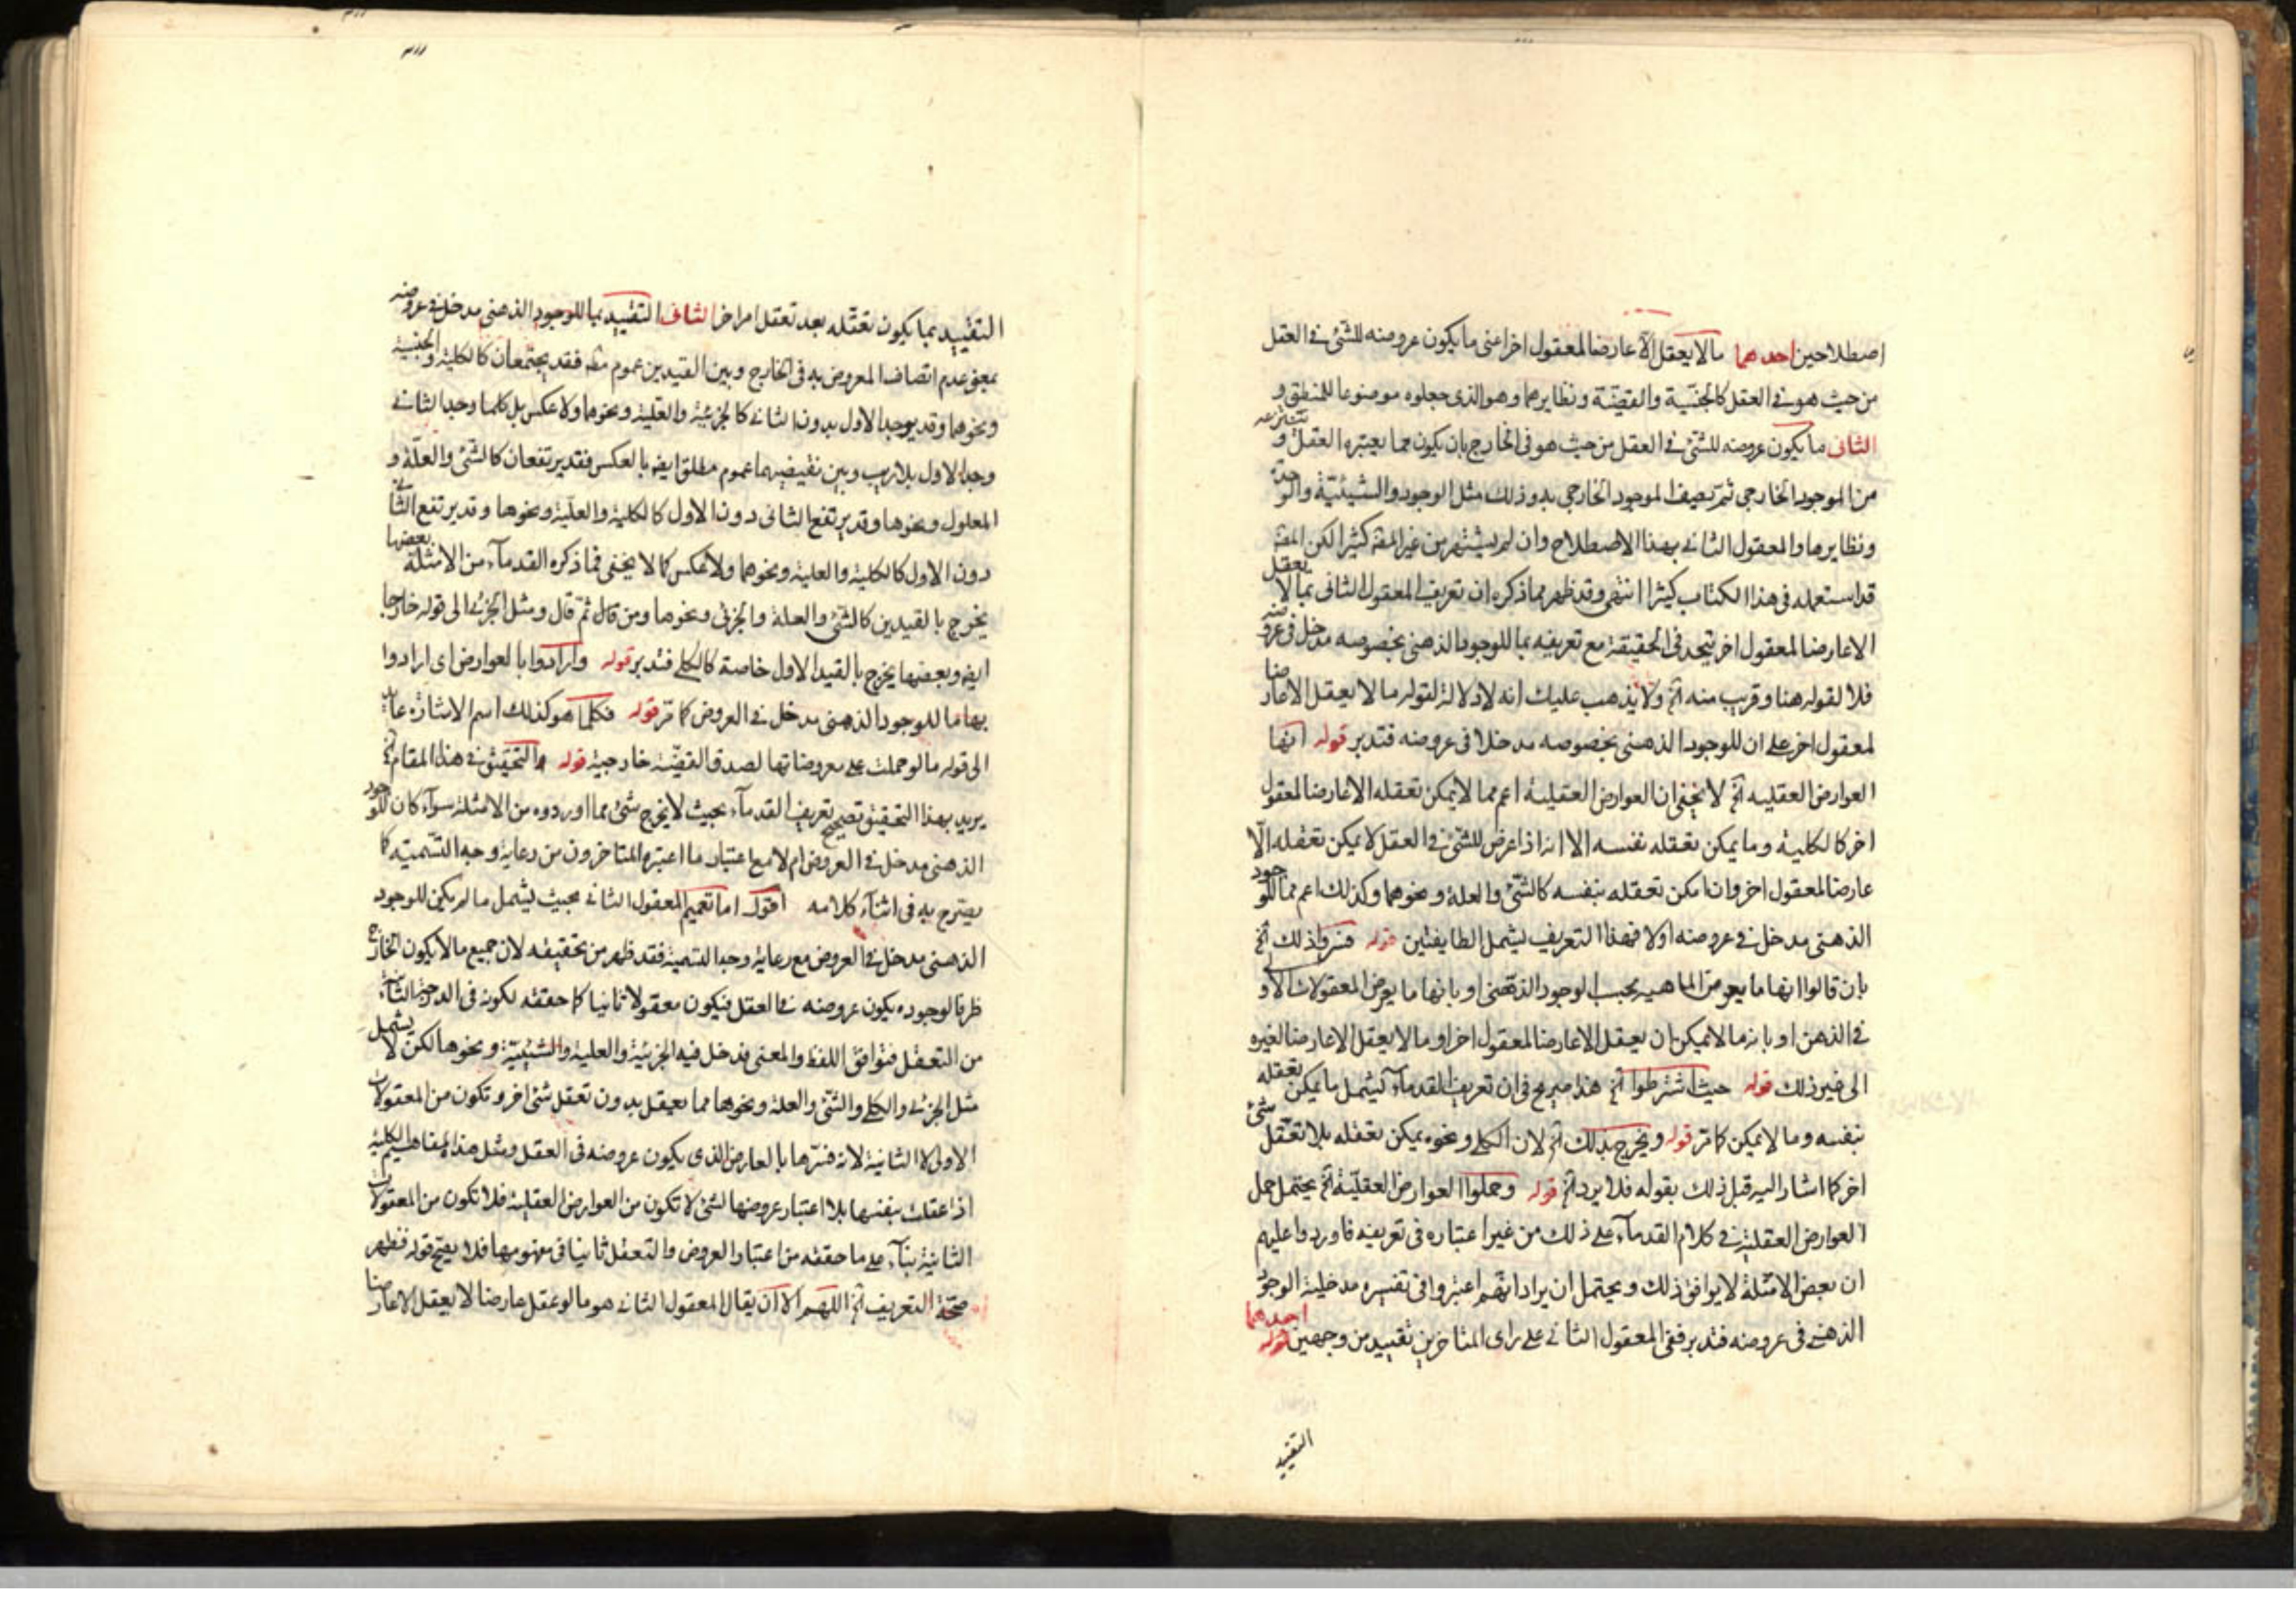 اصطلاحين احدهما مالايعقل الا عارضا لمعقول اخر اعنى ما يكون عروضه للشئ فى العقل
من حيث هو فى العقل كالجنسية والفصلية ونظايرهما وهو الذى جعلوه موضوعا للمنطق و
الثانى ما يكون عروضه للشئ فى العقل من حيث هو فى الخارج بان يكون مما يعتبره العقل و ينتزعه
من الموجود الخارجى ثم يصف الموجود الخارجى به وذلك مثل الوجود والشيئية والوحدة
ونظايرها والمعقول الثانى بهذا الاصطلاح وان لم يشتهر من غير المصـ كثيرا لكن المصـ
قد استعمله فى هذا الكتاب كثيرا انتهى وقد ظهر مما ذكره ان تعريف المعقول الثانى بما لا يعقل
الا عارضا لمعقول اخر يتحد فى الحقيقة مع تعريفه بما للوجود الذهنى بخصوصه مدخل فى عروضه
فلا لقوله هنا وقريب منه الخ ولا يذهب عليك انه لا دلالة لقوله ما لا يعقل الا عارضا
لمعقول اخر على ان للوجود الذهنى بخصوصه مدخلا فى عروضه فتدبر قوله انها
العوارض العقلية الخ لا يخفى ان العوارض العقلية اعم مما لا يمكن تعقله الا عارضا لمعقول
اخر كالكلية وما يمكن تعقله نفسه الا انه اذا عرض للشئ فى العقل لا يمكن تعقله الا
عارضا لمعقول اخر وان امكن تعقله بنفسه كالشئ والعلة ونحوهما وكذلك اعم مما للوجود
الذهنى مدخل فى عروضه اولا فهذا التعريف يشمل الطايفتين قوله فسروا ذلك الخ
بان قالوا انها ما يعرض الماهية بحسب الوجود الذهنى او بانها ما يعرض المعقولات الاولى
فى الذهن او بانه ما لا يمكن ان يعقل الا عارضا لمعقول اخر او ما لا يعقل الا عارضا لغيره
الى غير ذلك قوله حيث اشترطوا الخ هذا صريح فى ان تعريف القدماء يشمل ما يمكن تعقله
بنفسه وما لا يمكن كما مر قوله ويخرج بذلك الخ لان الكلى ونحوه يمكن تعقله بلا تعقل شئ
اخر كما اشار اليه قبل ذلك بقوله فلا يرد الخ قوله وحملوا العوارض العقلية الخ يحتمل حمل
العوارض العقلية فى كلام القدماء على ذلك من غير اعتباره فى تعريفه فاوردوا عليهم
ان بعض الامثلة لا يوافق ذلك ويحتمل ان يراد انهم اعتبروا فى تفسيره مدخلية الوجود
الذهنى فى عروضه فتدبر ففى المعقول الثانى على راى المتاخرين تقييد من وجهين احدهما
التقييد
التقييد بما يكون تعقله بعد تعقل امر اخر الثانى التقييد بما للوجود الذهنى مدخل فى عروضه
بمعنى عدم اتصاف المعروض به فى الخارج وبين القيدين عموم مطـ فقد يجتمعان كالكلية والجنسية
ونحوهما وقد يوجد الاول بدون الثانى كالجزئية والعلية ونحوهما ولا عكس بل كلما وجد الثانى
وجد الاول بلا ريب وبين نقيضيهما عموم مطلق ايضـ بالعكس فقد يرتفعان كالشئ والعلة و
المعلول ونحوها وقد يرتفع الثانى دون الاول كالكلية والعلية ونحوها وقد يرتفع الثانى
دون الاول كالكلية والعلية ونحوهما ولا عكس كما لا يخفى فما ذكره القدماء من الامثلة بعضها
يخرج بالقيدين كالشئ والعلة والجزئى ونحوها ومن قال ثم قال ومثل الجزئى الى قوله خارجا
ايضـ وبعضها يخرج بالقيد الاول خاصة كالكلى فتدبر قوله وارادوا بالعوارض اى ارادوا
بها ما للوجود الذهنى مدخل فى العروض كما مر قوله فكلما هو كذلك اسم الاشارة عايد
الى قوله ما لو حملت على معروضاتها لصدق القضية خارجية قوله والتحقيق فى هذا المقام الخ
يريد بهذا التحقيق تصحيح تعريف القدماء بحيث لا يخرج شئ مما اوردوه من الامثلة سواء كان للوجود
الذهنى مدخل فى العروض ام لا مع اعتبار ما اعتبره المتاخرون من رعاية وجه التسمية كما
يصرح به فى اثناء كلامه اقول اما تعميم المعقول الثانى بحيث يشمل ما لم يكن للوجود
الذهنى مدخل فى العروض مع رعاية وجه التسمية فقد ظهر من تحقيقه لان جميع ما لا يكون الخارج
ظرفا لوجوده يكون عروضه فى العقل فيكون معقولا ثانيا كما حققه لكونه فى الدرجة الثانية
من التعقل فتوافق اللفظ والمعنى فدخل فيه الجزئية والعلية والشيئية ونحوها لكن لا يشمل
مثل الجزئى والكلى والشئ والعلة ونحوها مما يعقل بدون تعقل شئ اخر وتكون من المعقولات
الاولى لا الثانية لانه فسرها بالعارض الذى يكون عروضه فى العقل ومثل هذا المفاهيم الكلية
اذا عقلت بنفسها بلا اعتبار عروضها لشئ لا تكون من العوارض العقلية فلا تكون من المعقولات
الثانية بناء على ما حققه من اعتبار العروض والتعقل ثانيا فى مفهومها فلا يصح قوله فظهر
صحة التعريف الخ اللهم الا ان يقال المعقول الثانى هو ما لو عقل عارضا لا يعقل الا عارضا